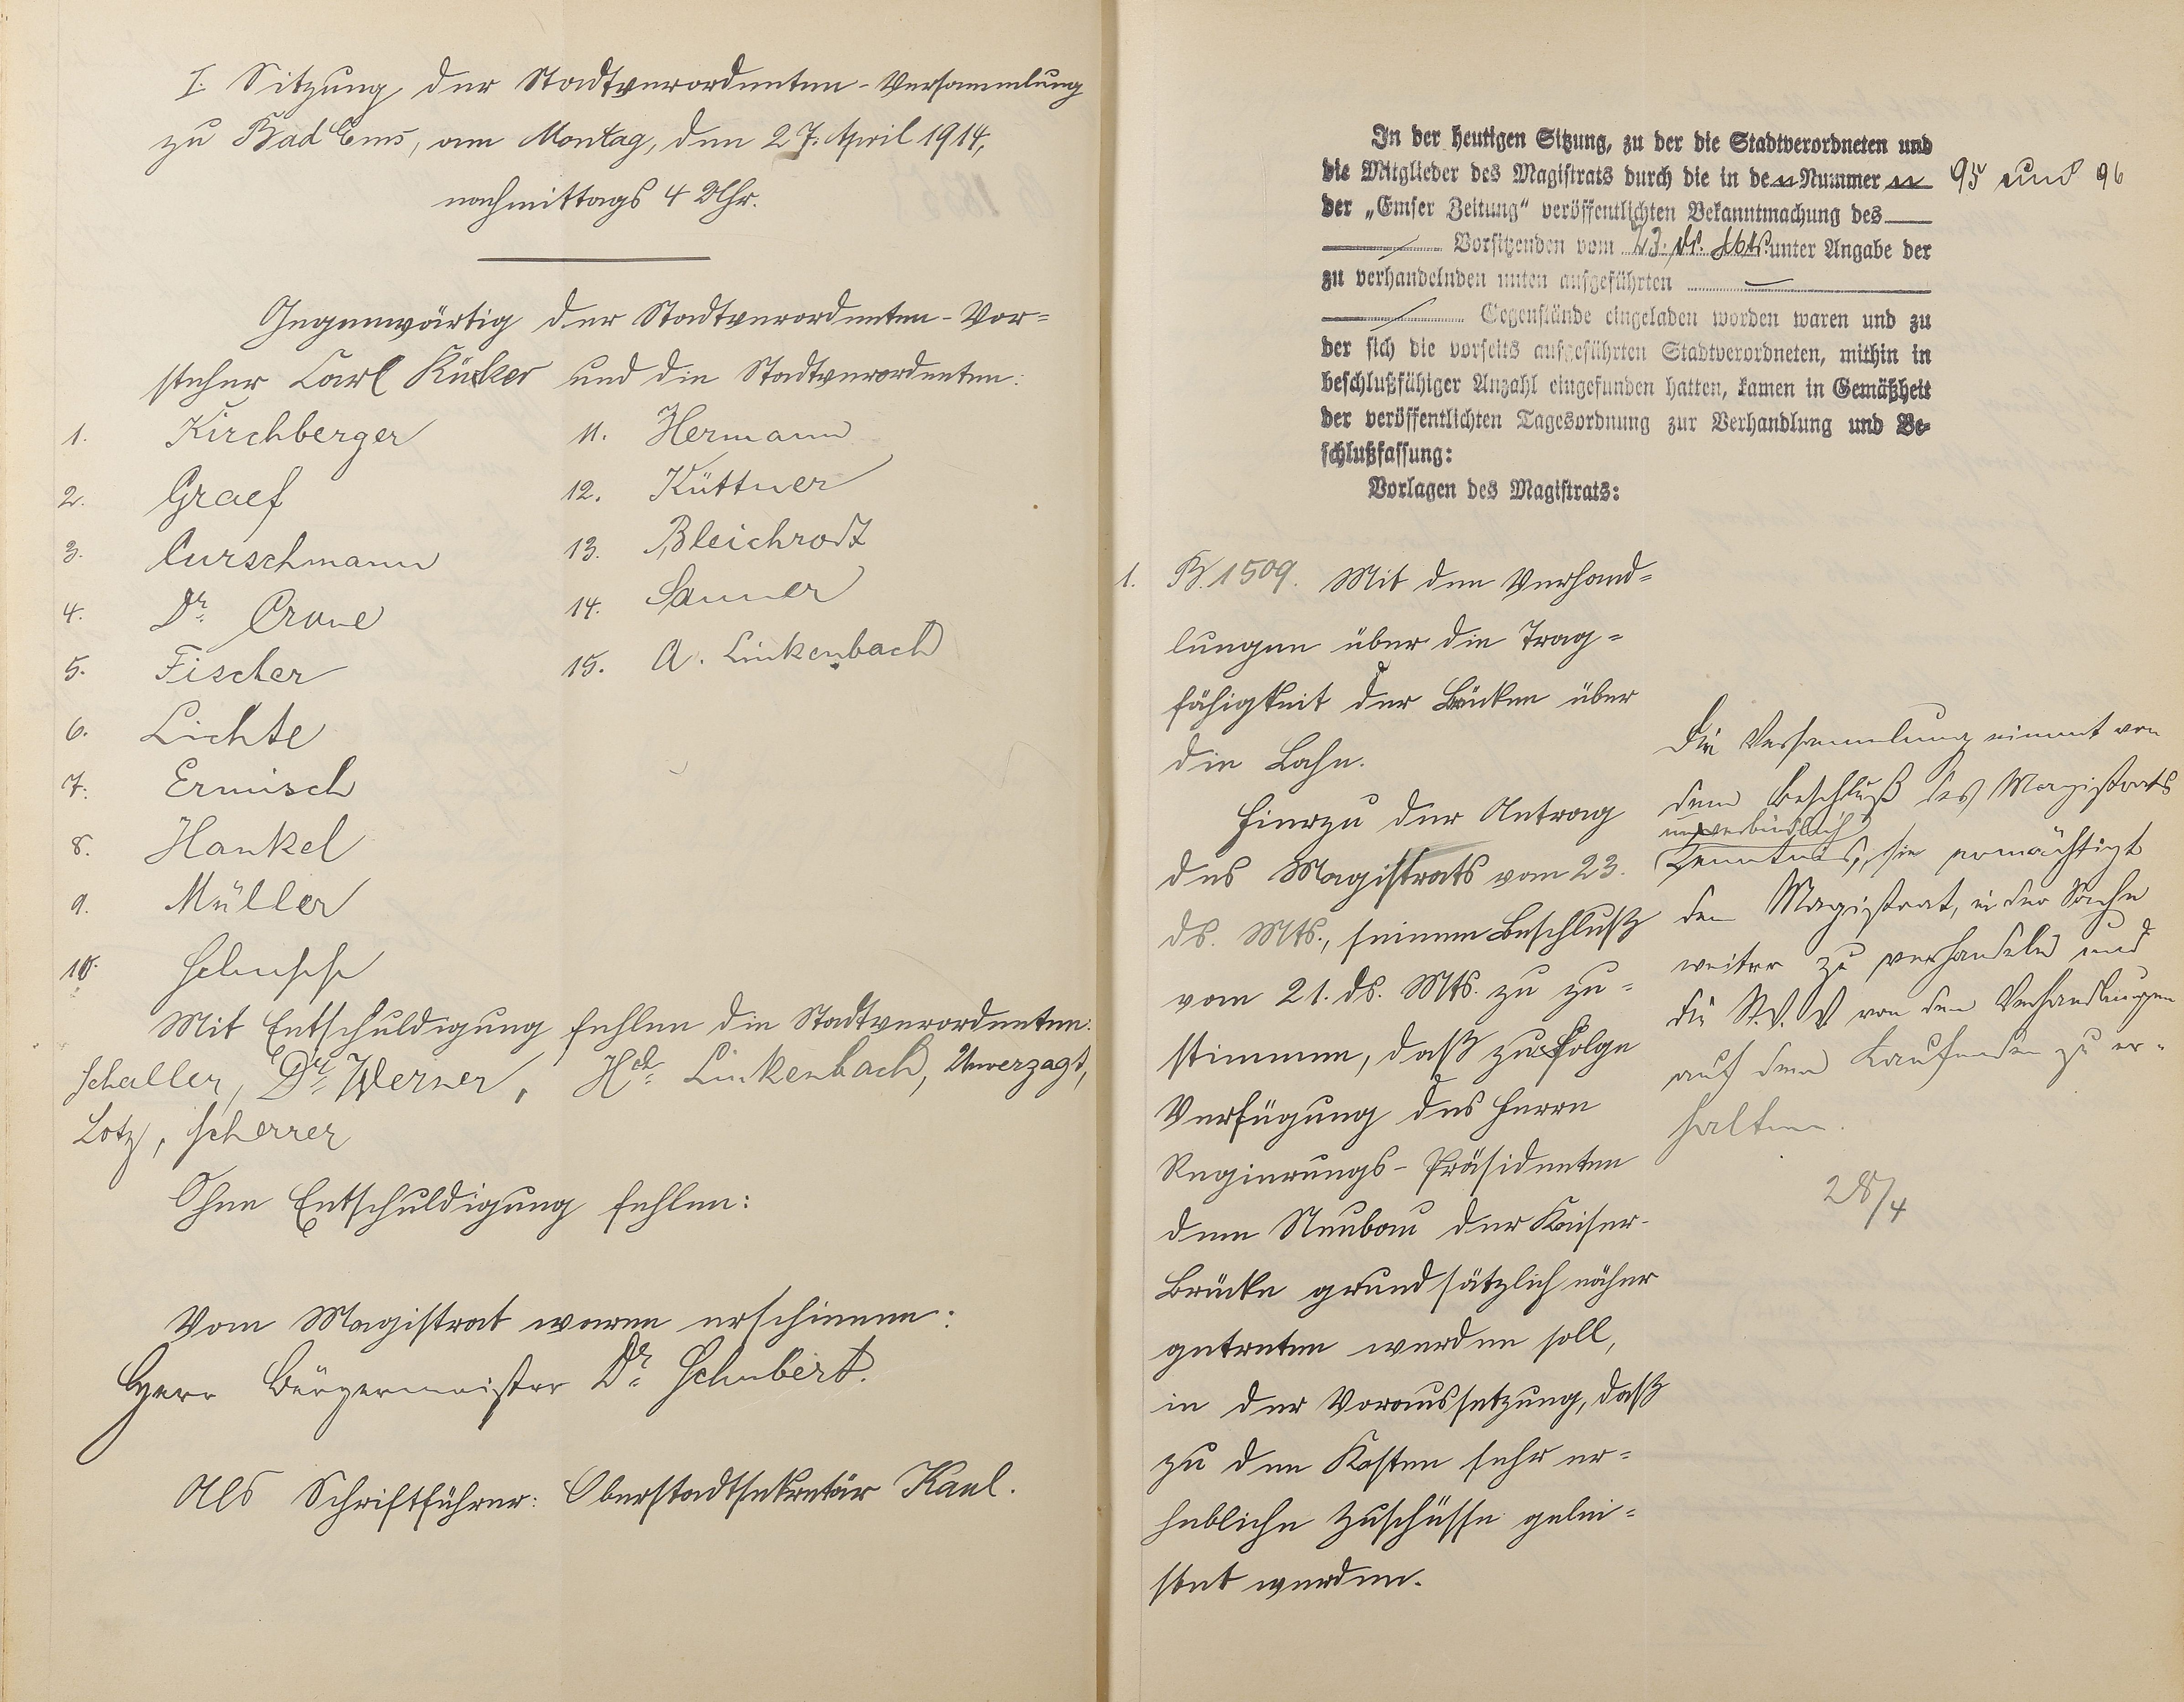 I. Sitzung der Stadtverordneten-Versammlung
zu Bad Ems, am Montag, den 27. April 1914,
nachmittags 4 Uhr.
Gegenwärtig der Stadtverordneten-Vor=
steher Carl Rücker und die Stadtverordneten:
1. Kirchberger
2. Graef
3. Curschmann
4. Dr. Crone
5. Fischer
6. Lichte
7. Ermisch
8. Hankel
9. Müller
10. Schupp
11. Hermann
12. Küttner
13. Bleichrodt
14. Sauner
15. A. Linkenbach
Mit Entschuldigung fehlen die Stadtverordneten:
Schaller, Dr. Werner, Hch. Linkenbach, Unverzagt,
Lotz, Scherrer
Ohne Entschuldigung fehlen:
Vom Magistrat waren erschienen:
Herr Bürgermeister Dr. Schubert.
Als Schriftführer: Oberstadtsekretär Kaul.
In der heutigen Sitzung, zu der die Stadtverordneten und
die Mitglieder des Magistrats durch die in den Nummern 95 und 96
der „Emser Zeitung" veröffentlichten Bekanntmachung des
Vorsitzenden vom 23. ds. Mts. unter Angabe der
zu verhandelnden unten aufgeführten
Gegenstände eingeladen worden waren und zu
der sich die vorseits aufgeführten Stadtverordneten, mithin in
beschlußfähiger Anzahl eingefunden hatten, kamen in Gemäßheit
der veröffentlichten Tagesordnung zur Verhandlung und Be-
schlußfassung:
Vorlagen des Magistrats:
1. B. 1509. Mit den Verhand=
lungen über die Trag=
fähigkeit der Brücken über
die Lahn.
Hierzu der Antrag
des Magistrats vom 23.
ds. Mts., seinem Beschluß
vom 21. ds. Mts. zu zu=
stimmen, daß zufolge
Verfügung des Herrn
Regierungs-Präsidenten
dem Neubau der Kaiser-
Brücke grundsätzlich näher
getreten werden soll,
in der Voraussetzung, daß
zu den Kosten sehr er=
hebliche Zuschüsse gelei=
stet werden.
Die Versammlung nimmt von
dem Beschluß des Magistrats
unverbindlich
Kenntnis, sie ermächtigt
den Magistrat, in der Sache
weiter zu verhandeln und
die St. V. V. von den Verhandlungen
auf dem Laufenden zu er-
halten.
28/4